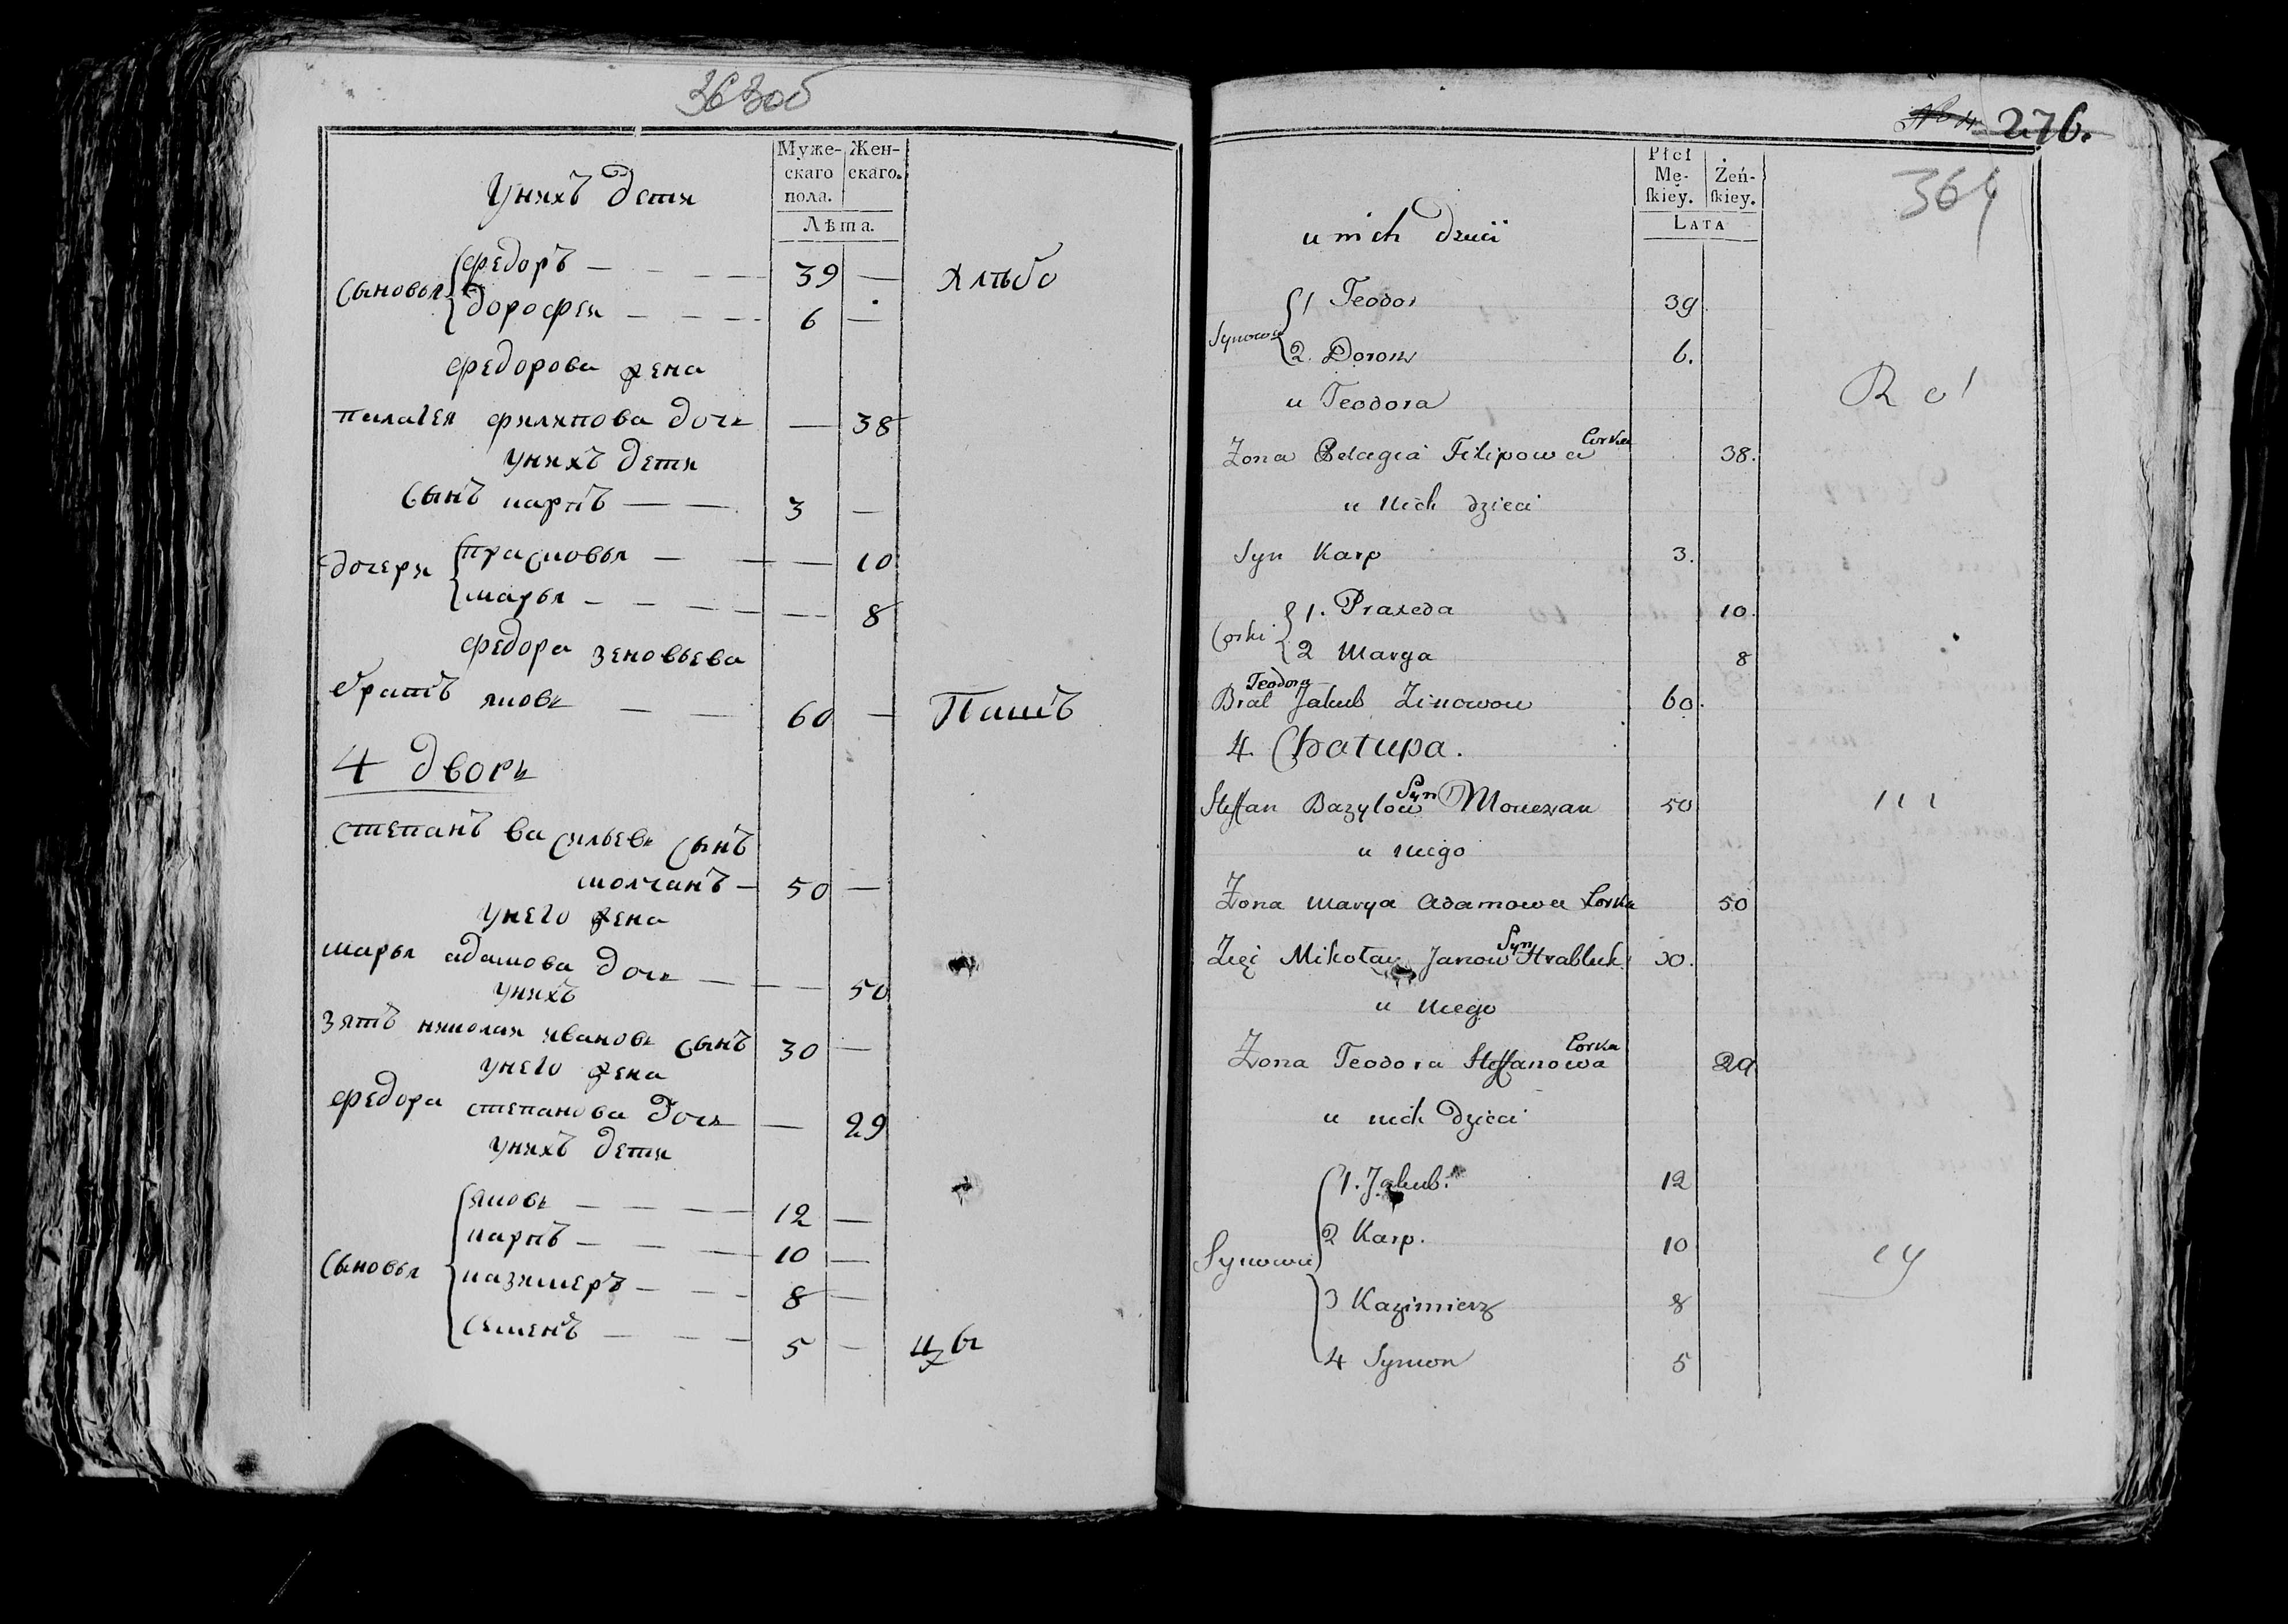 363об
Муже- Жен-
скаго скаго.
пола.
Лѣта.
Унихъ дети
Сыновья
Федоръ — 39 — Хлѣбо
Дорофеи — 6 —
Федорова жена
пилагея филипова дочь — 38
Унихъ дети
Сынъ карпъ — 3 —
дочери
прасковья — 10
марья — 8
Федора зеновьева
братъ яковъ — 60 — Пашъ
4 дворъ
Степанъ васильевъ сынъ
молчанъ — 50 —
Унего жена
марья адамова дочь — 50
Унихъ
зять николаи ивановъ сынъ 30 —
Унего жена
федора степанова дочь — 29
Унихъ дети
Сыновья
яковъ — 12 —
карпъ — 10 —
казимеръ — 8 —
Семенъ — 5 —
276.
364
Płci
Mę- Żeń-
ſkiey. ſkiey.
LATA
u nich dzieci
Synowie
1 Teodor 39
2. Doroz 6.
u Teodora
Żona Pelagia Filipowa Corka 38.
u Nich dzieci
Syn Karp 3.
Corki
1. Praxeda 10.
2 Marya 8
Teodora
Brat Jakub Zinowow 60.
4. Chatupa.
Steffan Bazylow Syn Monczan 50
u niego
Żona Marya Adamowa Corka 50
Zięć Mikołay Janow Syn Hrabluk 30.
u Niego
Żona Teodora Steffanowa Corka 29
u nich Dzieci
Synowie
1. Jakub. 12
2 Karp. 10
3 Kazimierz 8
4 Symon 5